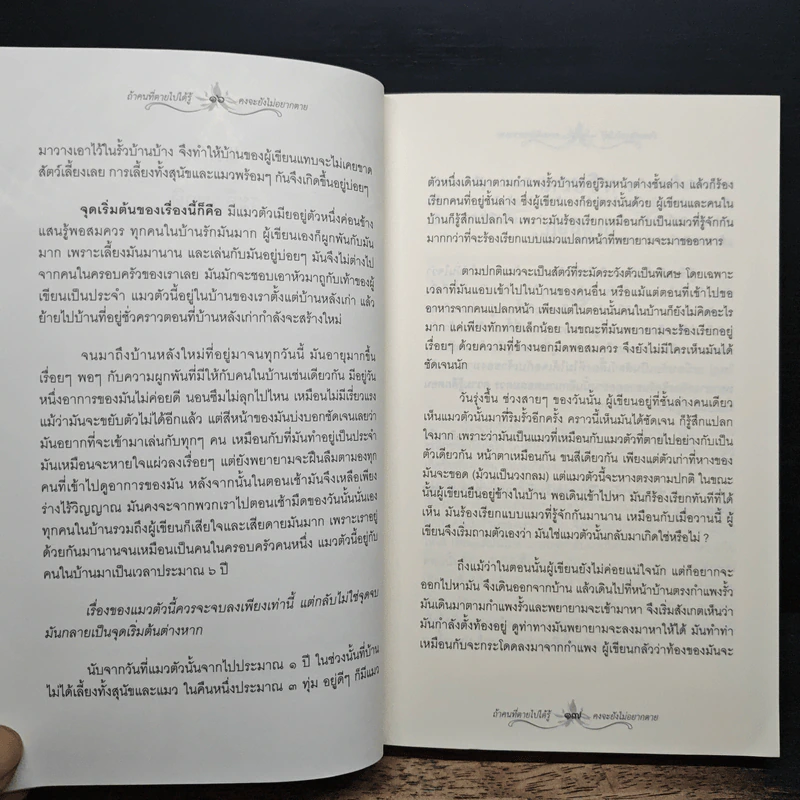 ถ้าคนที่ตายไปได้รู้ ๑๖ คงจะยังไม่อยากตาย
มาวางเอาไว้ในรั้วบ้านบ้าง จึงทำให้บ้านของผู้เขียนแทบจะไม่เคยขาด
สัตว์เลี้ยงเลย การเลี้ยงทั้งสุนัขและแมวพร้อมๆ กันจึงเกิดขึ้นอยู่บ่อยๆ
จุดเริ่มต้นของเรื่องนี้ก็คือ มีแมวตัวเมียอยู่ตัวหนึ่งค่อนข้าง
แสนรู้พอสมควร ทุกคนในบ้านรักมันมาก ผู้เขียนเองก็ผูกพันกับมัน
มาก เพราะเลี้ยงมันมานาน และเล่นกับมันอยู่บ่อยๆ มันจึงไม่ต่างไป
จากคนในครอบครัวของเราเลย มันมักจะชอบเอาหัวมาถูกับเท้าของผู้
เขียนเป็นประจำ แมวตัวนี้อยู่ในบ้านของเราตั้งแต่บ้านหลังเก่า แล้ว
ย้ายไปบ้านที่อยู่ชั่วคราวตอนที่บ้านหลังเก่ากำลังจะสร้างใหม่
จนมาถึงบ้านหลังใหม่ที่อยู่มาจนทุกวันนี้ มันอายุมากขึ้น
เรื่อยๆ พอๆ กับความผูกพันที่มีให้กับคนในบ้านเช่นเดียวกัน มีอยู่วัน
หนึ่งอาการของมันไม่ค่อยดี นอนซึมไม่ลุกไปไหน เหมือนไม่มีเรี่ยวแรง
แม้ว่ามันจะขยับตัวไม่ได้อีกแล้ว แต่สีหน้าของมันบ่งบอกชัดเจนเลยว่า
มันอยากที่จะเข้ามาเล่นกับทุกๆ คน เหมือนกับที่มันทำอยู่เป็นประจำ
มันเหมือนจะหายใจแผ่วลงเรื่อยๆ แต่ยังพยายามจะฝืนลืมตามองทุก
คนที่เข้าไปดูอาการของมัน หลังจากนั้นในตอนเช้ามันจึงเหลือเพียง
ร่างไร้วิญญาณ มันคงจะจากพวกเราไปตอนเช้ามืดของวันนั้นนั่นเอง
ทุกคนในบ้านรวมถึงผู้เขียนก็เสียใจและเสียดายมันมาก เพราะเราอยู่
ด้วยกันมานานจนเหมือนเป็นคนในครอบครัวคนหนึ่ง แมวตัวนี้อยู่กับ
คนในบ้านมาเป็นเวลาประมาณ ๖ ปี
เรื่องของแมวตัวนี้ควรจะจบลงเพียงเท่านี้ แต่กลับไม่ใช่จุดจบ
มันกลายเป็นจุดเริ่มต้นต่างหาก
นับจากวันที่แมวตัวนั้นจากไปประมาณ ๑ ปี ในช่วงนั้นที่บ้าน
ไม่ได้เลี้ยงทั้งสุนัขและแมว ในคืนหนึ่งประมาณ ๓ ทุ่ม อยู่ดีๆ ก็มีแมว
ตัวหนึ่งเดินมาตามกำแพงรั้วบ้านที่อยู่ริมหน้าต่างชั้นล่าง แล้วก็ร้อง
เรียกคนที่อยู่ชั้นล่าง ซึ่งผู้เขียนเองก็อยู่ตรงนั้นด้วย ผู้เขียนและคนใน
บ้านก็รู้สึกแปลกใจ เพราะมันร้องเรียกเหมือนกับเป็นแมวที่รู้จักกัน
มากกว่าที่จะร้องเรียกแบบแมวแปลกหน้าที่พยายามจะมาขออาหาร
ตามปกติแมวจะเป็นสัตว์ที่ระมัดระวังตัวเป็นพิเศษ โดยเฉพาะ
เวลาที่มันแอบเข้าไปในบ้านของคนอื่น หรือแม้แต่ตอนที่เข้าไปขอ
อาหารจากคนแปลกหน้า เพียงแต่ในตอนนั้นคนในบ้านก็ยังไม่คิดอะไร
มาก แค่เพียงทักทายเล็กน้อย ในขณะที่มันพยายามจะร้องเรียกอยู่
เรื่อยๆ ด้วยความที่ข้างนอกมืดพอสมควร จึงยังไม่มีใครเห็นมันได้
ชัดเจนนัก
วันรุ่งขึ้น ช่วงสายๆ ของวันนั้น ผู้เขียนอยู่ที่ชั้นล่างคนเดียว
เห็นแมวตัวนั้นมาที่ริมรั้วอีกครั้ง คราวนี้เห็นมันได้ชัดเจน ก็รู้สึกแปลก
ใจมาก เพราะว่ามันเป็นแมวที่เหมือนกับแมวตัวที่ตายไปอย่างกับเป็น
ตัวเดียวกัน หน้าตาเหมือนกัน ขนสีเดียวกัน เพียงแต่ตัวเก่าที่หางของ
มันจะขอด (ม้วนเป็นวงกลม) แต่แมวตัวนี้จะหางตรงตามปกติ ในขณะ
นั้นผู้เขียนยืนอยู่ข้างในบ้าน พอเดินเข้าไปหา มันก็ร้องเรียกทันทีที่ได้
เห็น มันร้องเรียกแบบแมวที่รู้จักกันมานาน เหมือนกับเมื่อวานนี้ ผู้
เขียนจึงเริ่มถามตัวเองว่า มันใช่แมวตัวนั้นกลับมาเกิดใช่หรือไม่ ?
ถึงแม้ว่าในตอนนั้นผู้เขียนยังไม่ค่อยแน่ใจนัก แต่ก็อยากจะ
ออกไปหามัน จึงเดินออกจากบ้าน แล้วเดินไปที่หน้าบ้านตรงกำแพงรั้ว
มันเดินมาตามกำแพงรั้วและพยายามจะเข้ามาหา จึงเริ่มสังเกตเห็นว่า
มันกำลังตั้งท้องอยู่ ดูท่าทางมันพยายามจะลงมาหาให้ได้ มันทำท่า
เหมือนกับจะกระโดดลงมาจากกำแพง ผู้เขียนกลัวว่าท้องของมันจะ
ถ้าคนที่ตายไปได้รู้ ๑๗ คงจะยังไม่อยากตาย